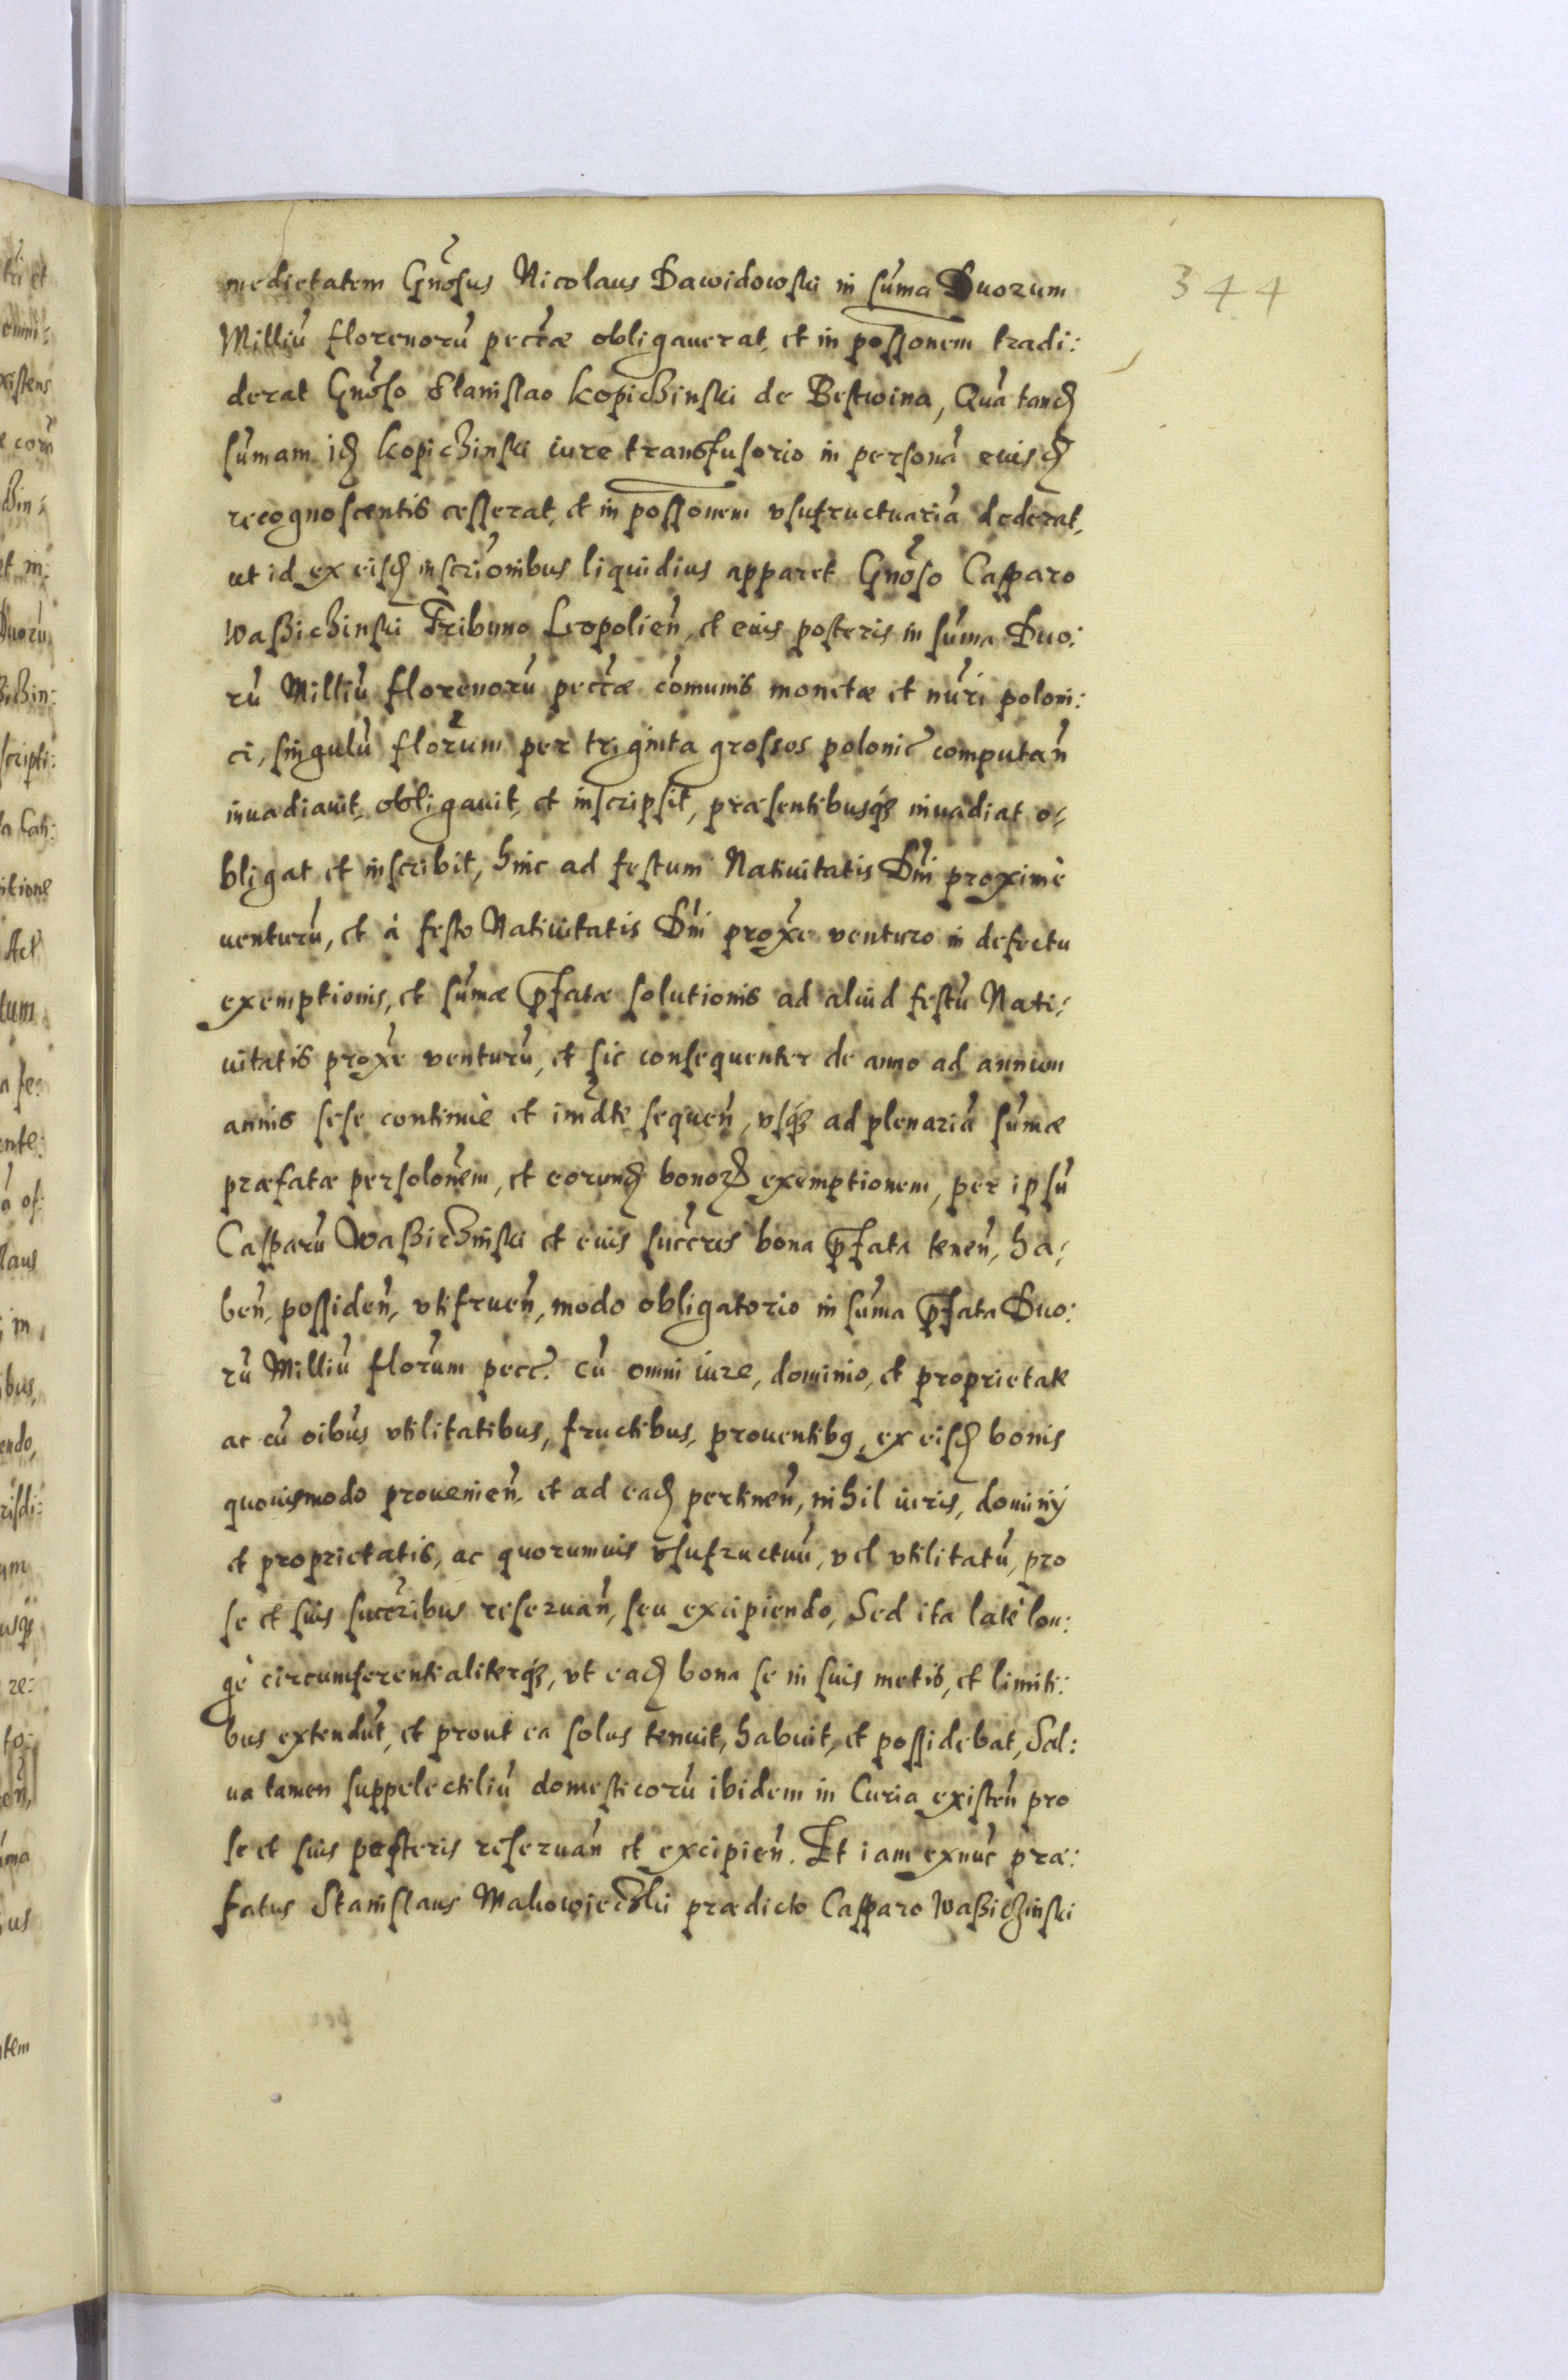 344
medietatem Gn̄osus Nicolaus Dawidowski in sum̄a Duorum
Milliū florenorū pecc̄æ obligauerat, et in poss̄onem tradi:
derat Gn̄oso Stanislao Kopichinski de Bestwina, Quā tand̄
sum̄am id̄ Kopichinski iure transfusorio in personā euisd̄
recognoscentis cesserat, et in poss̄onem vsufructuariā dederat,
ut id ex eisd̄ inscri̅onibus liquidius apparet Gn̄oso Casparo
Waßichinski Tribuno Leopolien̄, et eius posteris in sum̄a Duo:
rū Milliū florenorū pecc̄æ com̄unis monetæ et nūri poloni:
ci, singulū flor̄um per triginta grossos polonic̄ computan̄
inuadiauit, obligauit, et inscripsit, præsentibusq̨ inuadiat o-
bligat et inscribit, hinc ad festum Natiuitatis Dn̄i proximè
uenturū, et à festo Natiuitatis Dn̄i prox̄e venturo in defectu
exemptionis, et sum̄æ p̄fatæ solutionis ad aliud festū Nati-
uitatis prox̄e venturū, et sic consequenter de anno ad annum
annis sese continuè et im̄dte sequen̄, vsq̨ ad plenariā sum̄æ
præfatæ persolōnem, et eorund̄ bonor̄ exemptionem, per ipsū
Casparū Waßichinski et eius succ̄res bona p̄fata tenen̄, ha-
ben̄, possiden̄, vtifruen̄, modo obligatorio in sum̄a p̄fata Duo:
rū Milliū flor̄um pecc̄. cū omni iure, dominio, et proprietate
ac cū oib̄us vtilitatibus, fructibus, prouentibꝰ, ex eisd̄ bonis
quouismodo prouenien̄, et ad ead̄ pertinen̄, nihil iuris, dominij
et proprietatis, ac quorumuis vsufructuū, vel vtilitatū, pro
se et suis succ̄ribus reseruan̄, seu excipiendo, Sed ita latè lon:
gè circumferentialiterq̨, vt ead̄ bona se in suis metis, et limiti:
bus extendūt, et prout ea solus tenuit, habuit, et possidebat, Sal:
ua tamen suppelectiliū domesticorū ibidem in Curia existen̄ pro
se et suis posteris reseruan̄ et excipien̄. Et iam exnūc præ:
fatus Stanislaus Makowiecski prædicto Casparo Waßichinski